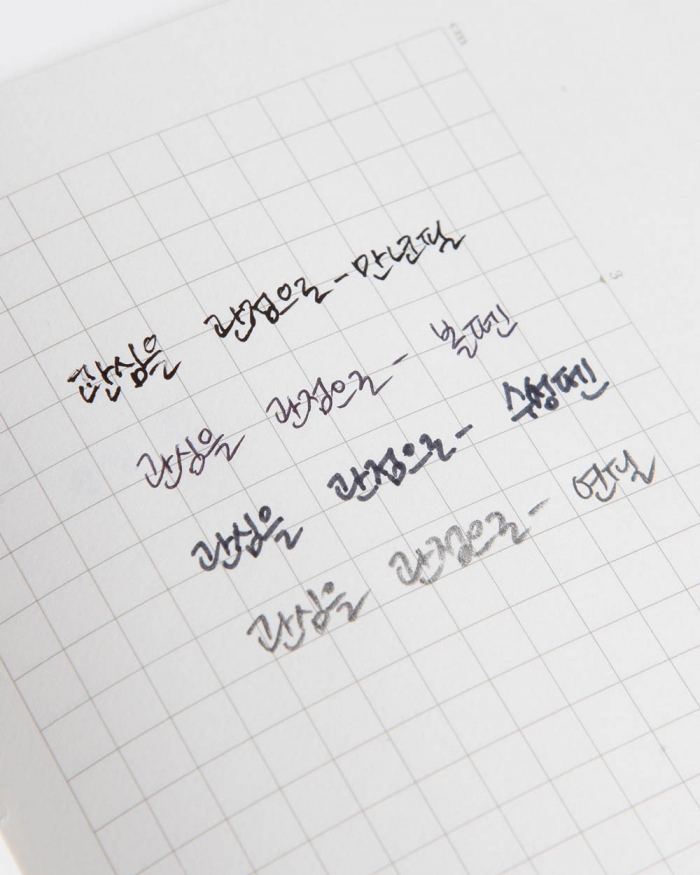 cm
관심을 관점으로 - 만년필
3
관심을 관점으로 - 볼펜
관심을 관점으로 - 수성펜
관심을 관점으로 - 연필